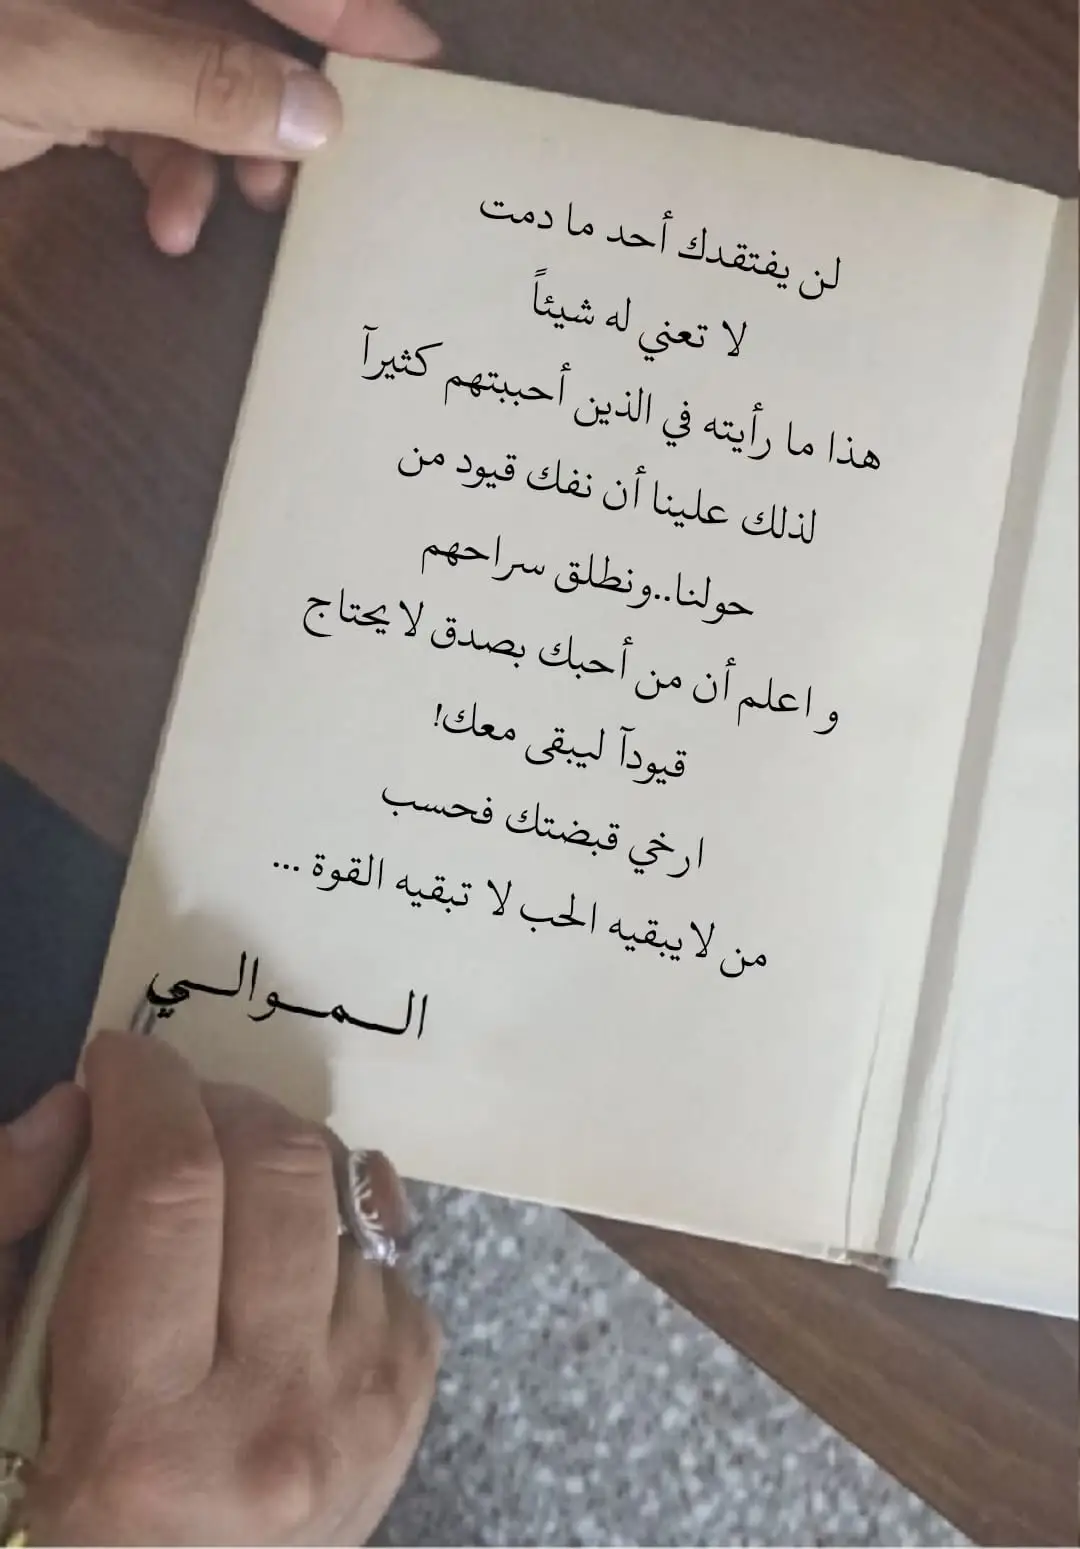 لن يفتقدك أحد ما دمت
لا تعني له شيئاً
هذا ما رأيته في الذين أحببتهم كثيرآ
لذلك علينا أن نفك قيود من
حولنا..ونطلق سراحهم
و اعلم أن من أحبك بصدق لا يحتاج
قيودآ ليبقى معك!
ارخي قبضتك فحسب
من لا يبقيه الحب لا تبقيه القوة ...
الـــمـــوالـــي